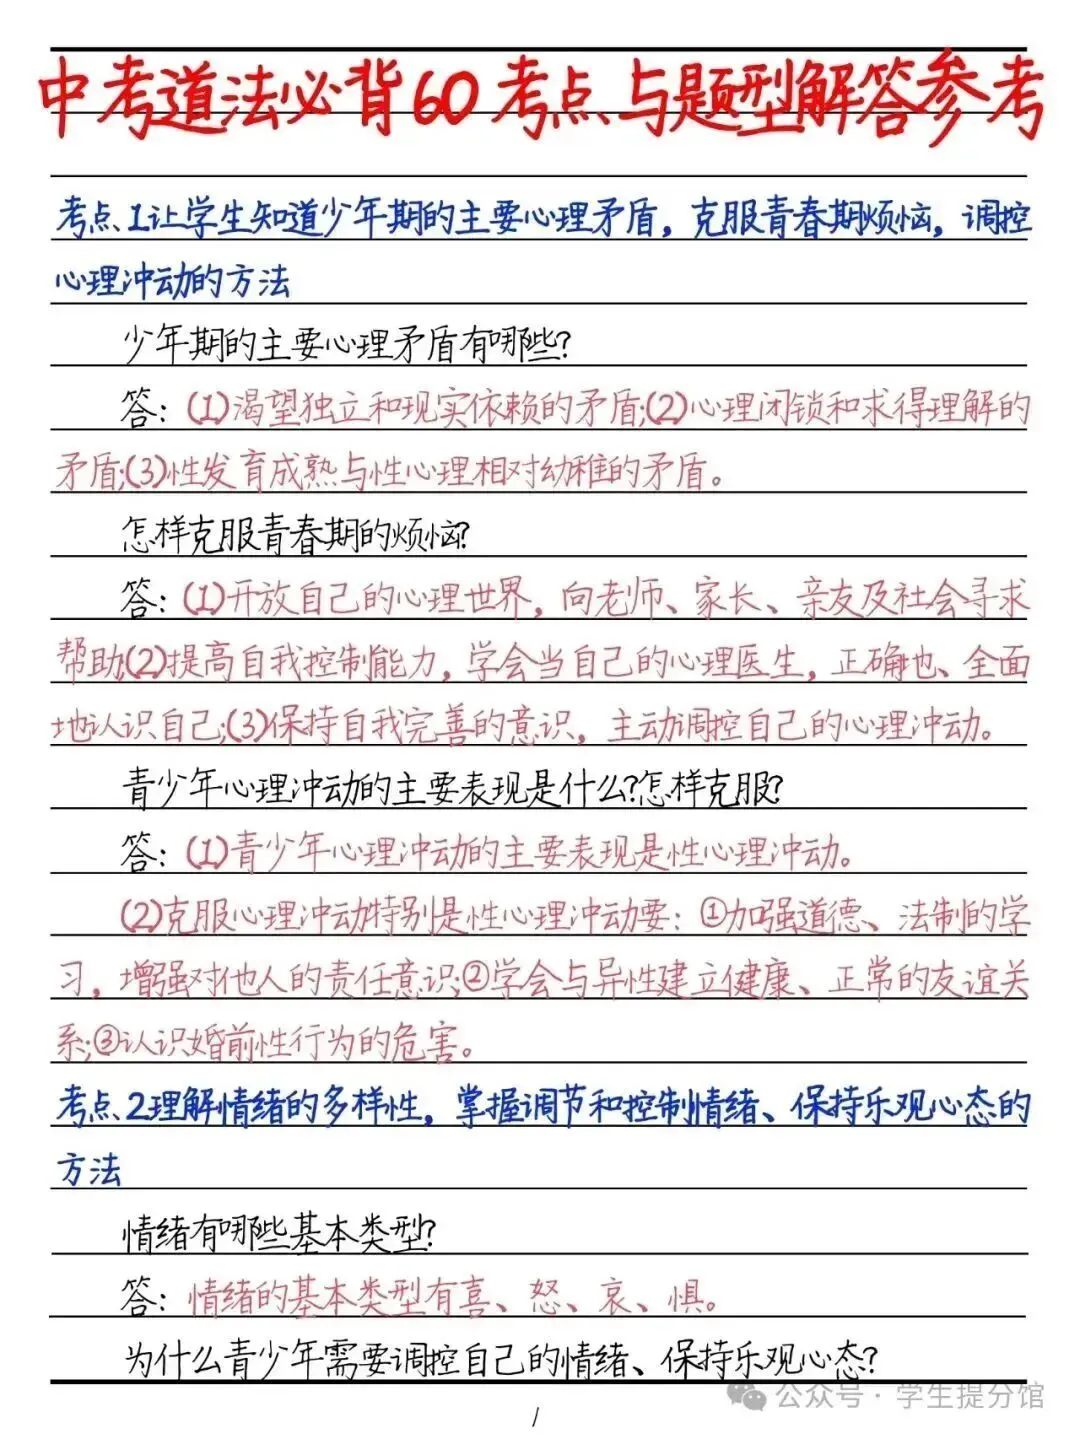 中考道法必背60考点与题型解答参考
考点1让学生知道少年期的主要心理矛盾，克服青春期烦恼，调控
心理冲动的方法
少年期的主要心理矛盾有哪些?
答：(1)渴望独立和现实依赖的矛盾;(2)心理闭锁和求得理解的
矛盾;(3)性发育成熟与性心理相对幼稚的矛盾。
怎样克服青春期的烦恼?
答：(1)开放自己的心理世界，向老师、家长、亲友及社会寻求
帮助;(2)提高自我控制能力，学会当自己的心理医生，正确地、全面
地认识自己;(3)保持自我完善的意识，主动调控自己的心理冲动。
青少年心理冲动的主要表现是什么?怎样克服?
答：(1)青少年心理冲动的主要表现是性心理冲动。
(2)克服心理冲动特别是性心理冲动要：①加强道德、法制的学
习，增强对他人的责任意识;②学会与异性建立健康、正常的友谊关
系;③认识婚前性行为的危害。
考点2理解情绪的多样性，掌握调节和控制情绪、保持乐观心态的
方法
情绪有哪些基本类型?
答：情绪的基本类型有喜、怒、哀、惧。
为什么青少年需要调控自己的情绪、保持乐观心态?
公众号·学生提分馆
1